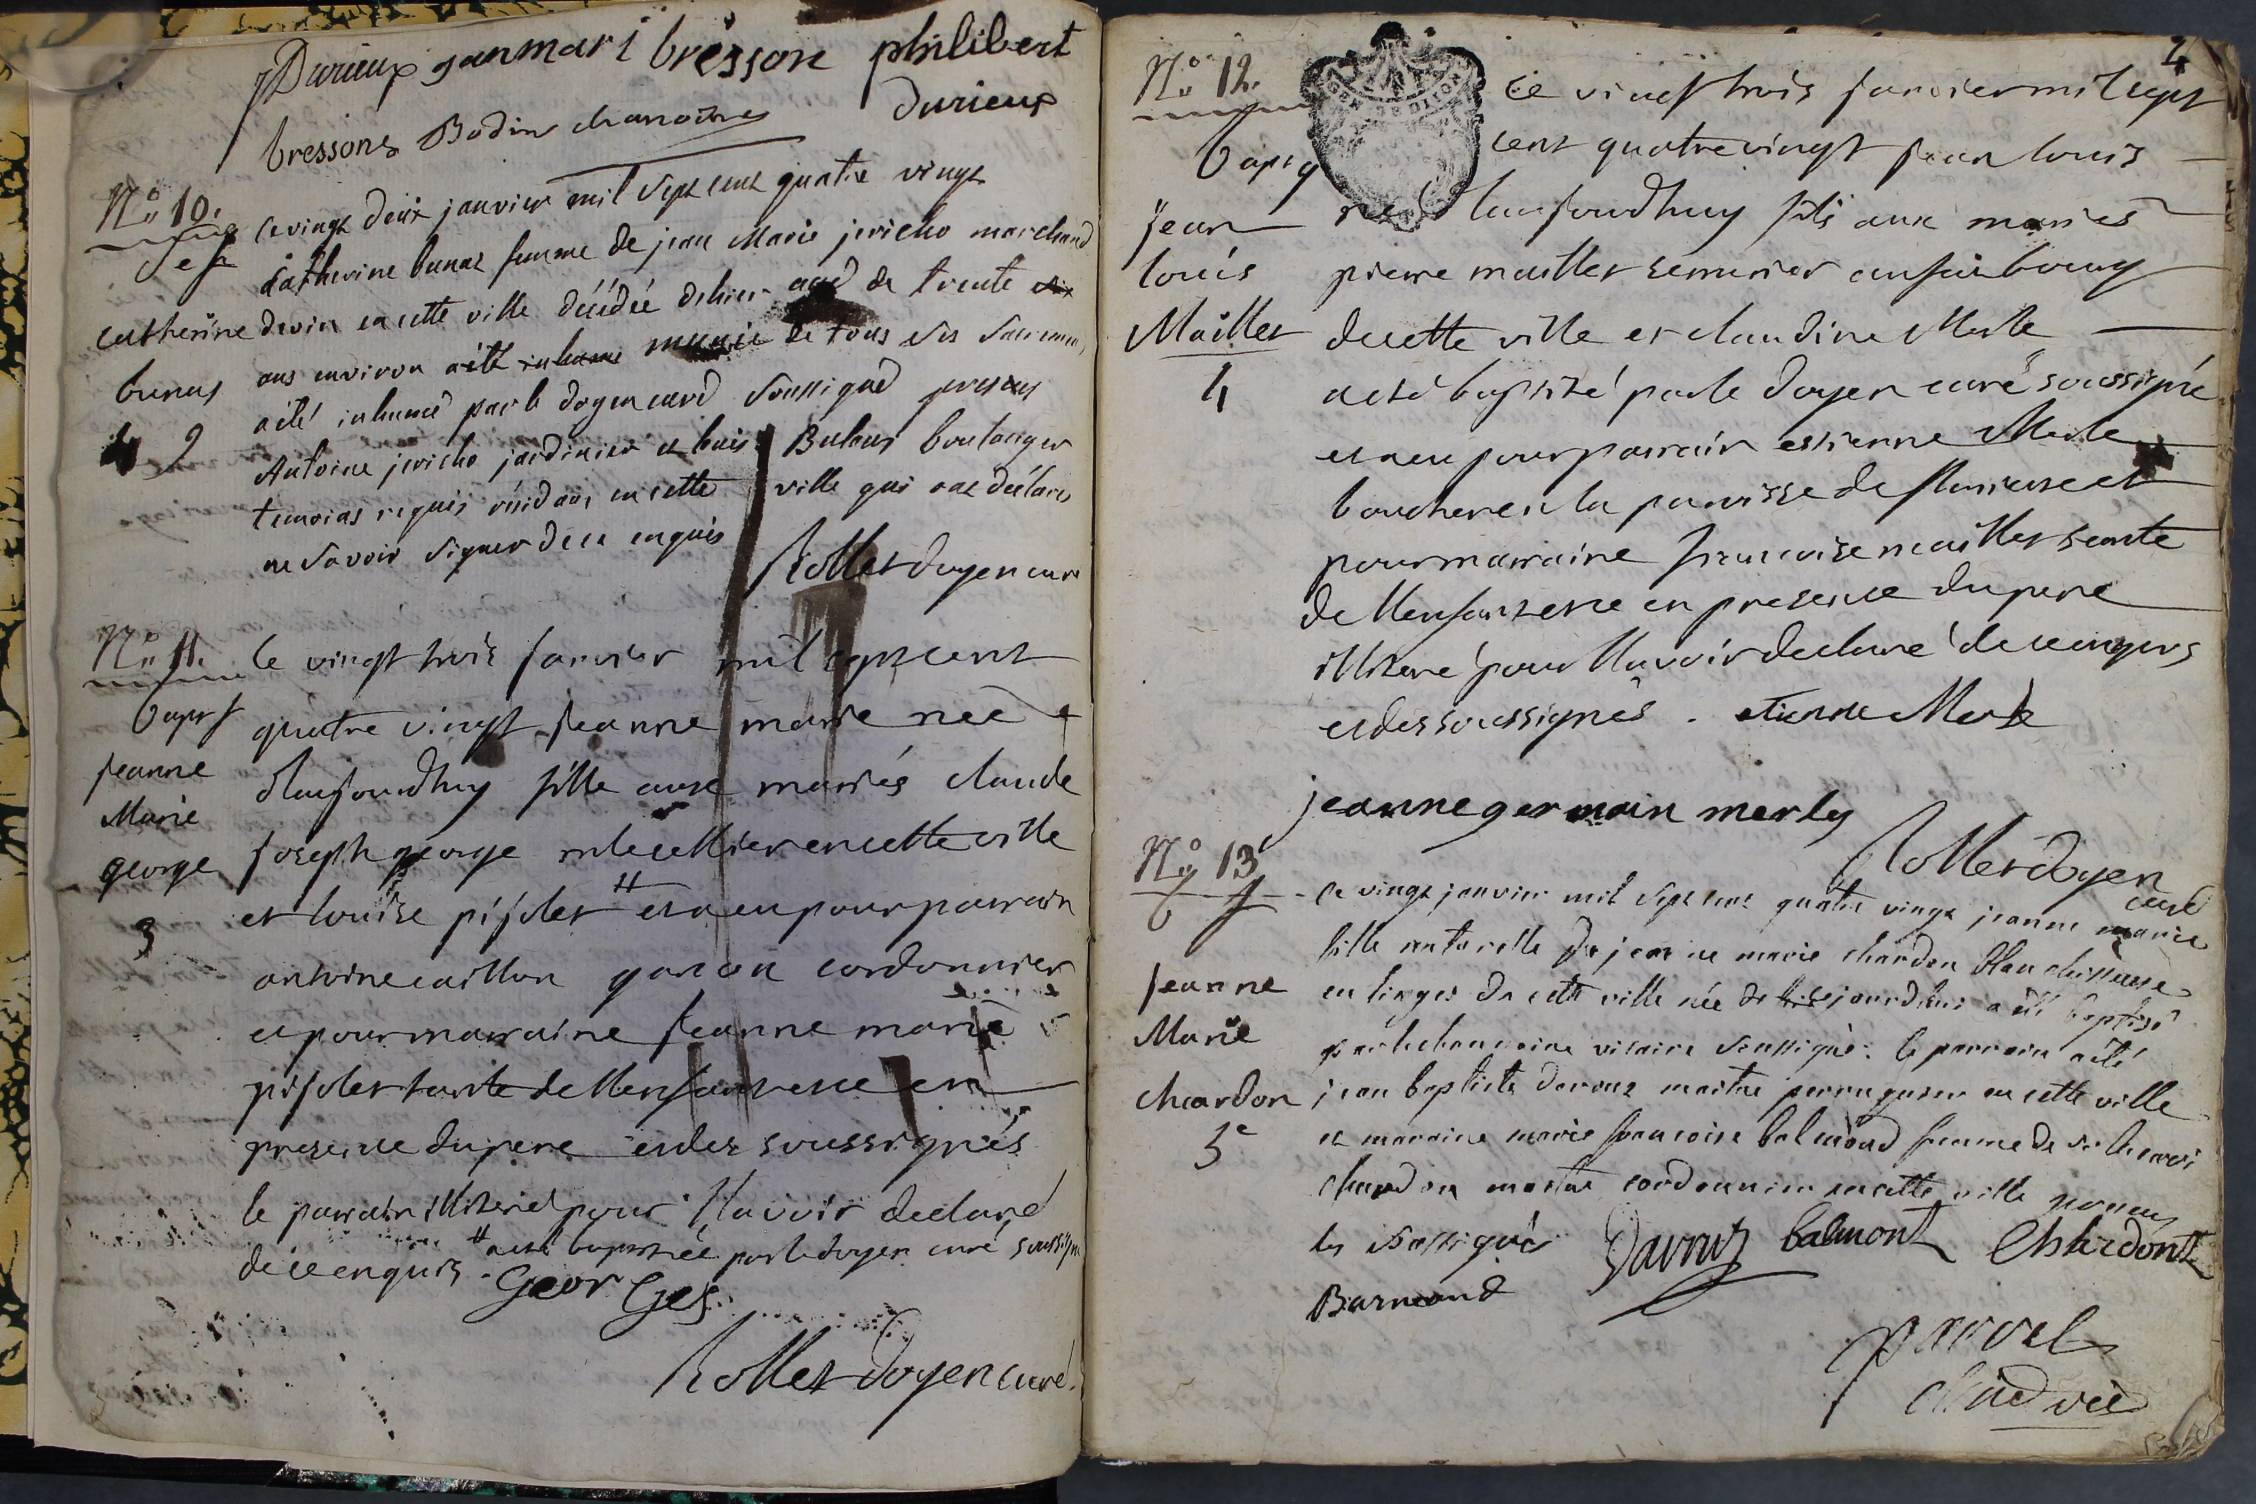 Durieux janmari bresson philibert
bressons Bodin chanoine durieux
N.o 10.
Sep
catherine
bunas
2
ce vingt deux janvier mil sept cent quatre vingt
catherine bunaz femme de jean Marie jericho marchand
de vin en cette ville décédée d'hier agé de trente
ans environ munie de tous ses sacremens,
a été inhumé par le doyen curé soussigné presens
Antoine jericho jardinier et louis boulanger
temoins requis résidans en cette ville qui ont déclaré
ne savoir signer de ce enquis
Rollet doyen curé
N.o 11.
bapt
jeanne
Marie
george
3
le vingt trois janvier mil sept cent
quatre vingt jeanne marie née
d'aujourdhuy fille aux mariés claude
joseph george en cette ville
et louise pisolet # et a eu pour parrain
antoine caillon garçon cordonnier
et pour marraine jeanne marie
pisolet tante de llenfant etre en
presence du pere et des soussignés
le parrain illiteré pour llavoir declaré
de ce enquis. # a esté baptisée par le doyen curé soussigné
GeorGes
Rollet doyen curé.
2
N.o 12.
bapt
jean
louis
Maillet
4
GEN DE DIJON
Le vingt trois janvier mil sept
cent quatre vingt jean louis
né d'aujourdhuy fils aux mariés
pierre maillet serrurier au faubourg
de cette ville et claudine Merle
a été baptisé par le doyen curé soussigné
et a eu pour parrain estienne Merle
boucher en la paroisse de fleurieux et
pour marraine francoise maillet tante
de llenfant etre en presence du pere
illiteré pour llavoir declaré de ce enquis
et des soussignés. etienne Merle
jeanne germain merly
Rollet doyen
curé
N.o 13
b f
jeanne
Marie
chardon
3e
ce vingt janvier mil sept cent quatre vingt jeanne marie
fille naturelle de jeanne marie chardon blanchisseuse
en linges de cette ville née de ce jourdhui a été baptisé
par le chanoine vicaire soussigné. le parrain a été
jean baptiste davouz maitre perruquier en cette ville
et maraine marie francoise balmond femme de
chardon maitre cordonnier en cette ville
les soussignés Davouz balmont Chardont
Barmond
parvel
chne vic